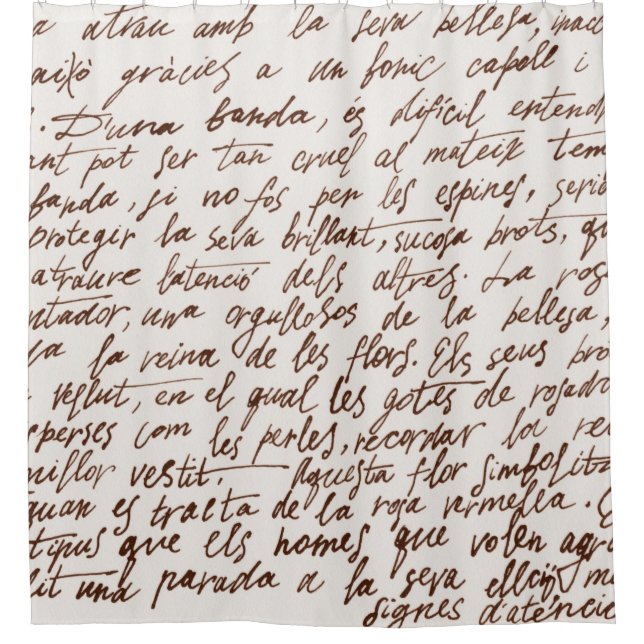 a atrau amb la seva bellesa, inacc
això gràcies a un fonic capoll i
. D'una banda, és difícil entend
ant pot ser tan cruel al mateix tem
banda, si no fos per les espines, seri
protegir la seva brillant, sucosa brots, qu
atraure l'atenció dels altres. La ros
ntador, una orgullosos de la bellesa,
la reina de les flors. Els seus bro
vellut, en el qual les gotes de rosad
sperses com les perles, recordar la re
millor vestit. Aquesta flor simbolitz
quan es tracta de la rosa vermella.
tipus que els homes que volen agr
una parada a la seva
signes d'atenció